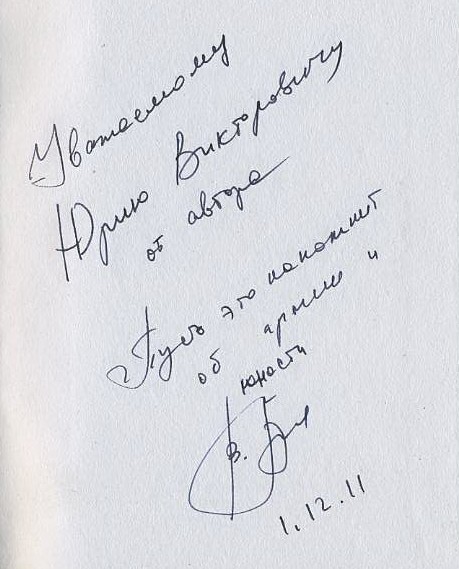 Уважаемому
Юрию Викторовичу
от автора
Пусть это напомнит
об армии и
юности
1.12.11